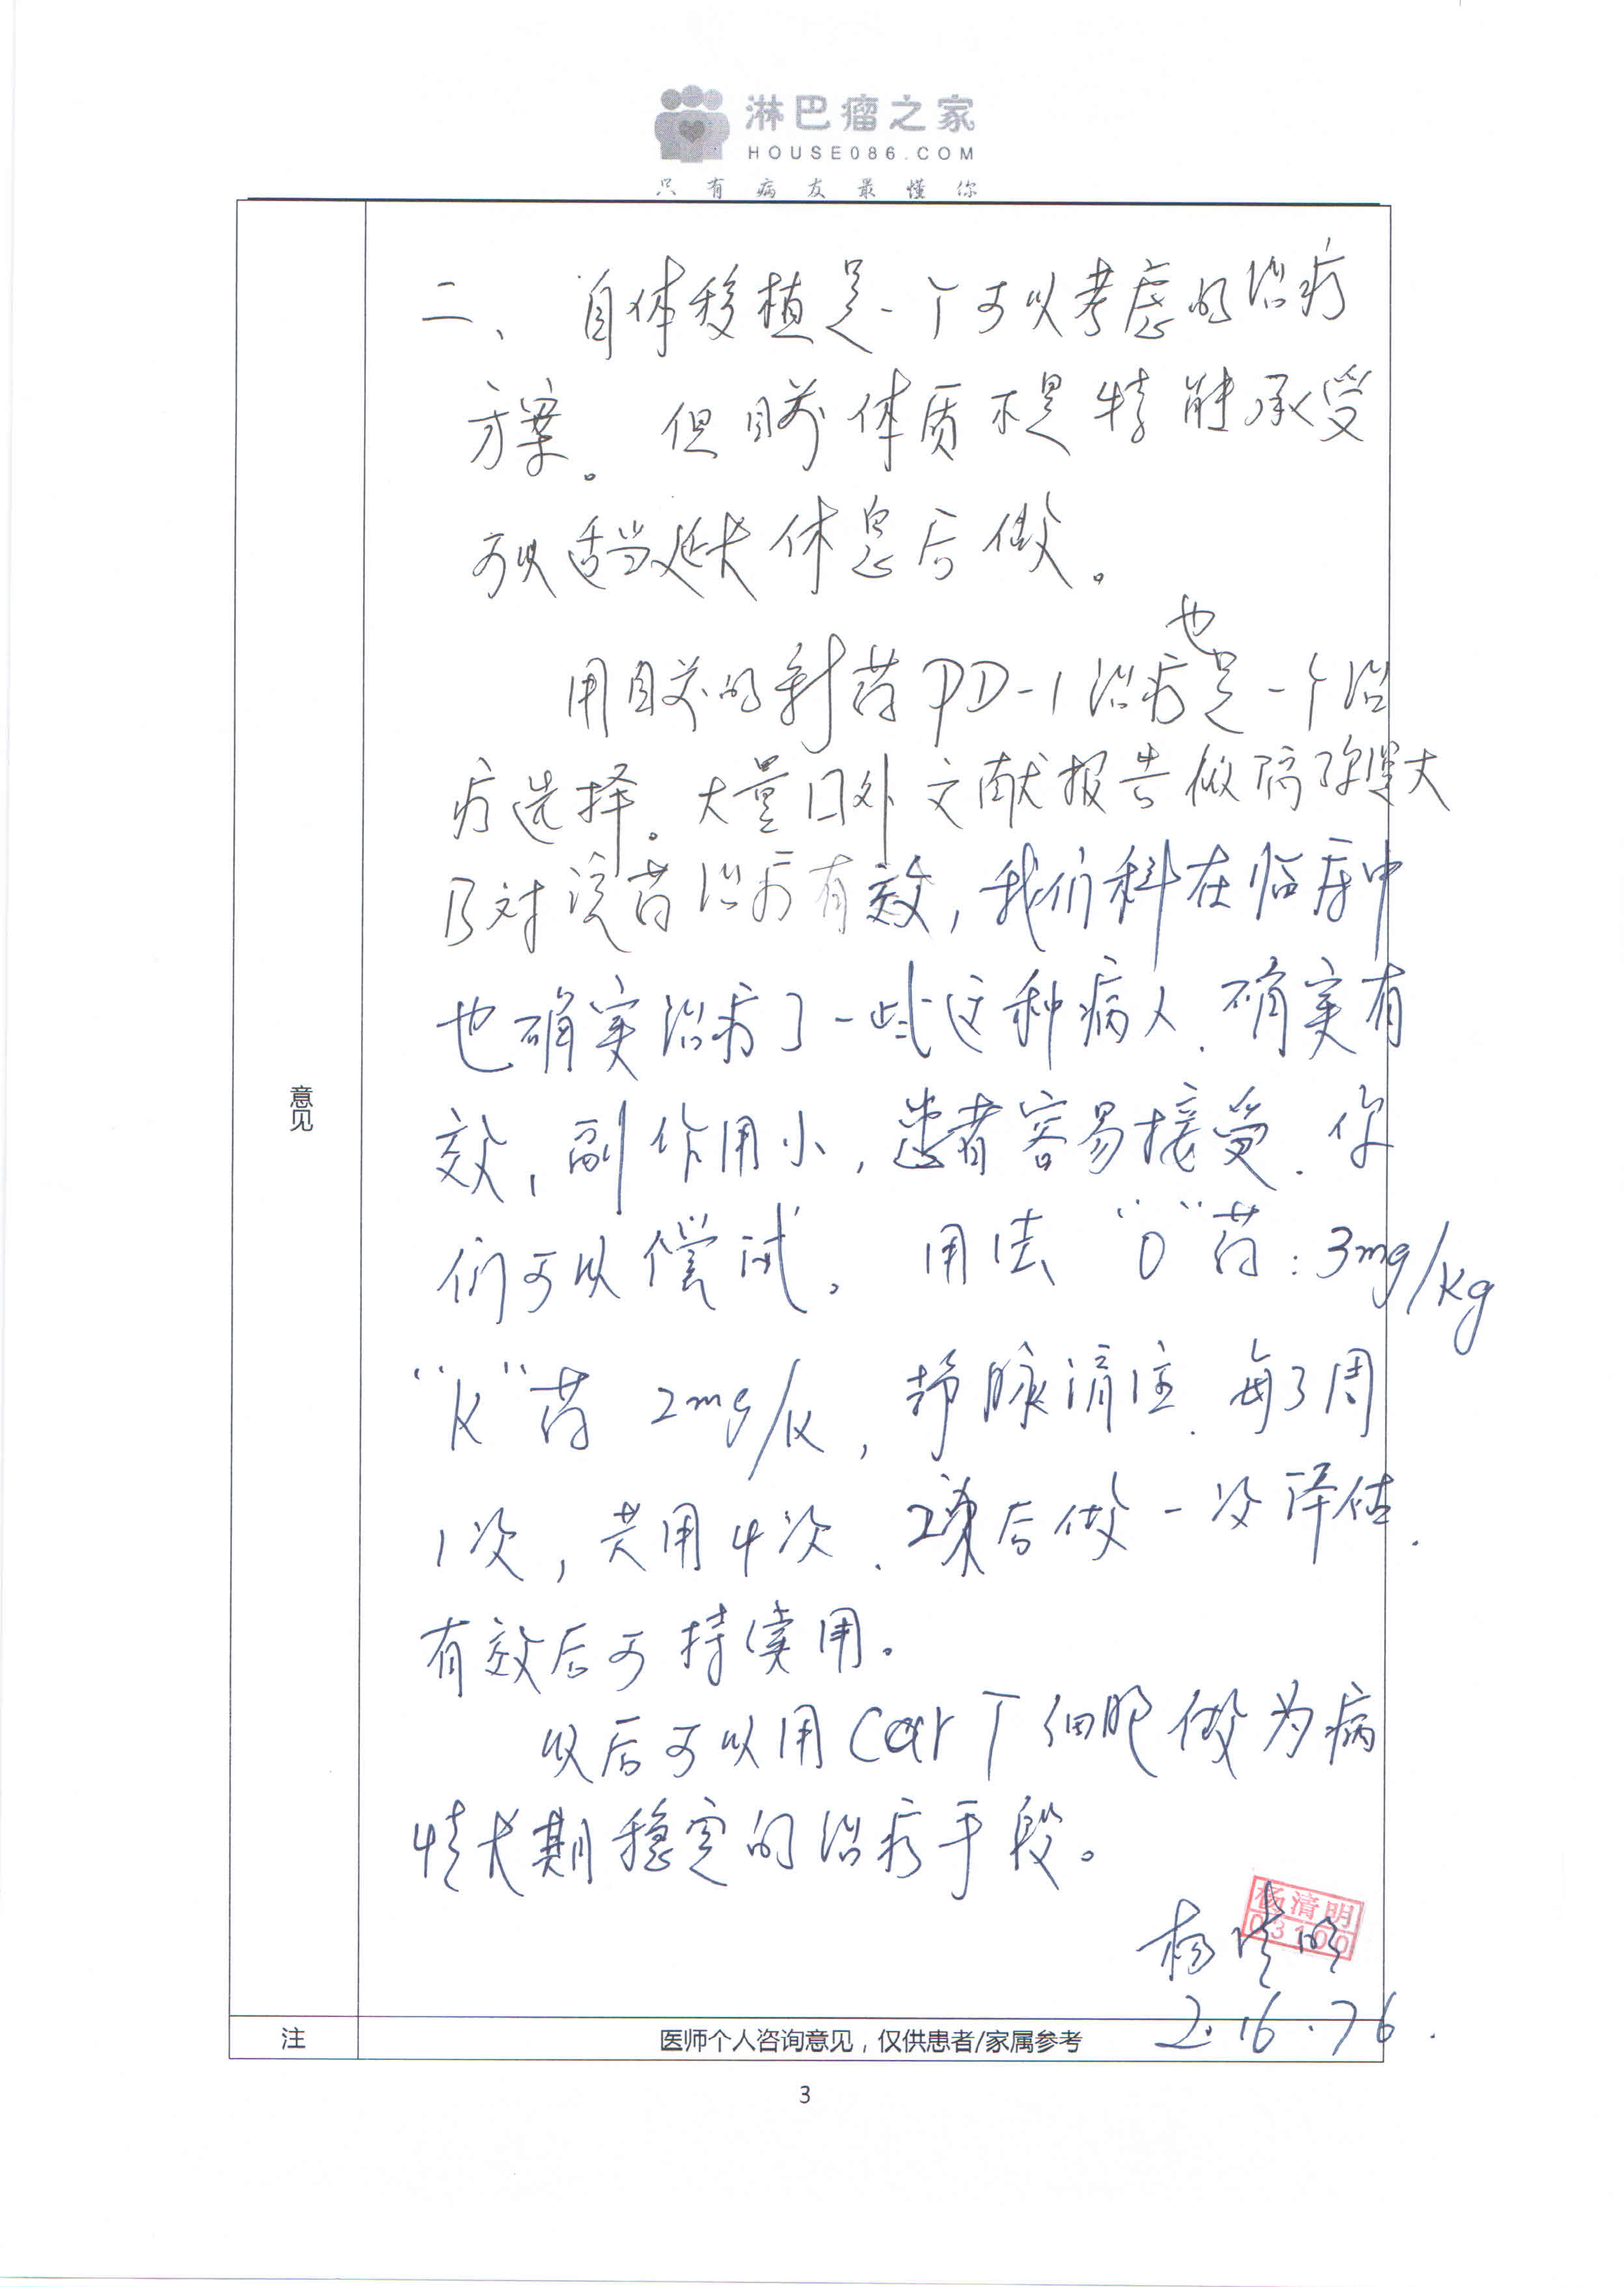 淋巴瘤之家
HOUSE086.COM
只有病友最懂你
二、自体移植是一个可以考虑的治疗
方案。但目前体质不是特能承受
可以适当延长休息后做。
也
用目前的新药PD-1治疗是一个治
疗选择。大量国外文献报告纵隔弥漫大
B对该药治疗有效，我们科在临床中
也确实治疗了一些这种病人.确实有
效，副作用小，患者容易接受.你
们可以偿试。用法"O"药：3mg/kg
"K"药 2mg/K，静脉滴注.每3周
1次，共用4次.2次后做一次评估.
有效后可持续用。
以后可以用Car T细胞做为病
情长期稳定的治疗手段。
意见
杨清明
03100
杨清明
注
医师个人咨询意见，仅供患者/家属参考
3